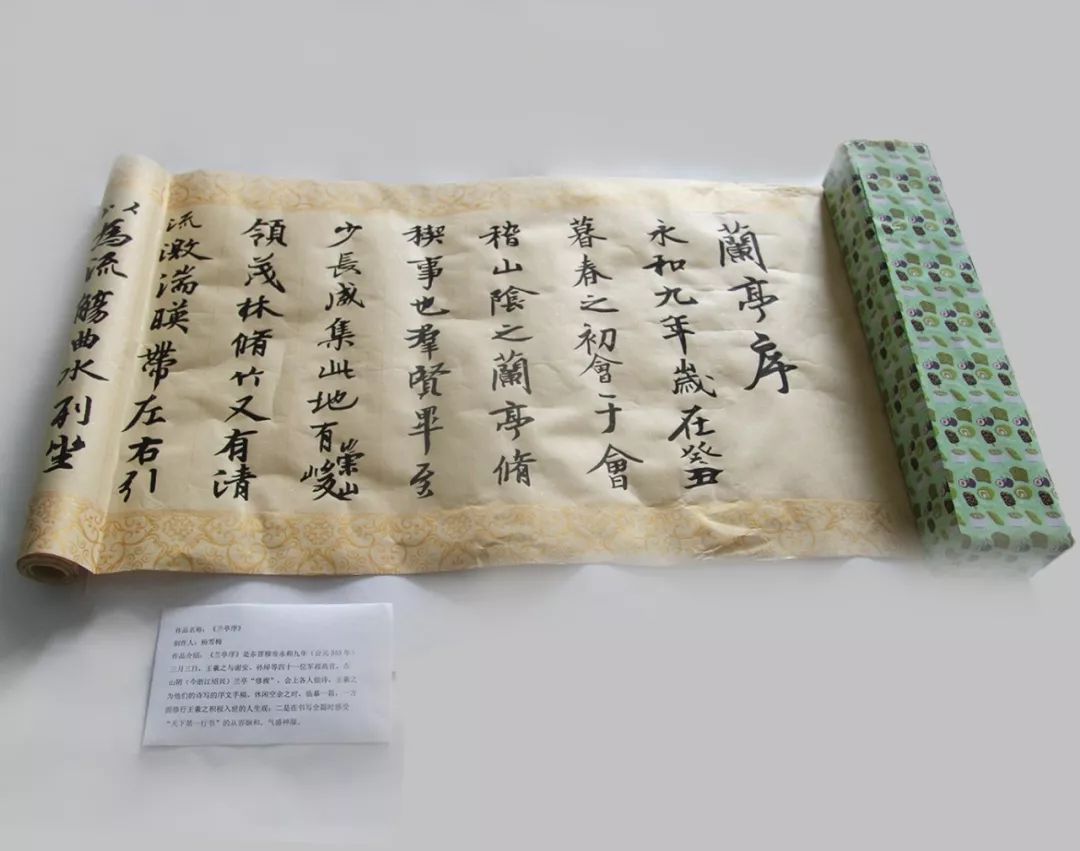 蘭亭序
永和九年歲在癸丑
暮春之初會于會
稽山陰之蘭亭脩
稧事也羣賢畢至
少長咸集此地有崇山峻
領茂林脩竹又有清
流激湍暎帶左右引
以為流觴曲水列坐
作品名称：《兰亭序》
制作人：
作品介绍：《兰亭序》是东晋穆帝永和九年（公元 353 年）
三月三日，王羲之与谢安、孙绰等四十一位军政高官，在
山阴（今浙江绍兴）兰亭“修禊”，会上各人做诗，王羲之
为他们的诗写的序文手稿。休闲空余之时，临摹一篇，一方
面修行王羲之积极入世的人生观；二是在书写全篇时感受
“天下第一行书”的从容娴和、气盛神凝。